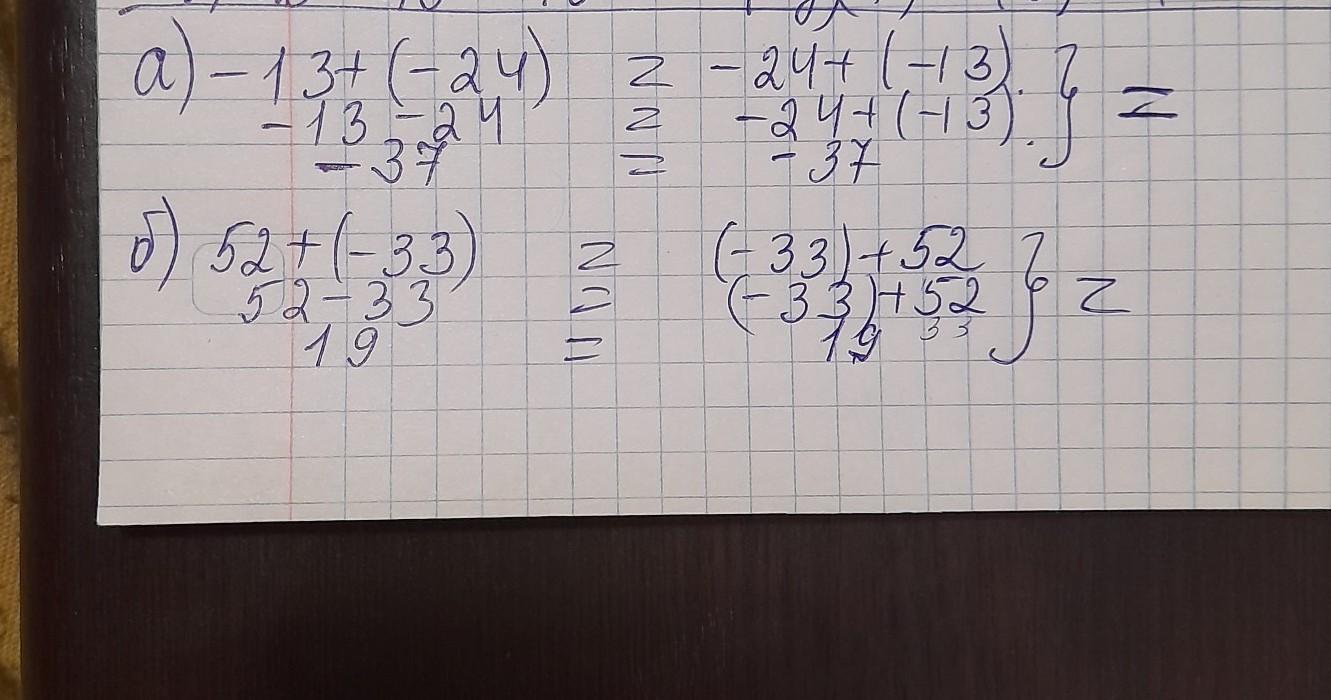 а) -13+(-24) = -24+(-13). } =
-13-24 = -24+(-13).
-37 = -37
б) 52+(-33) = (-33)+52 } =
52-33 = (-33)+52
33
19 = 19